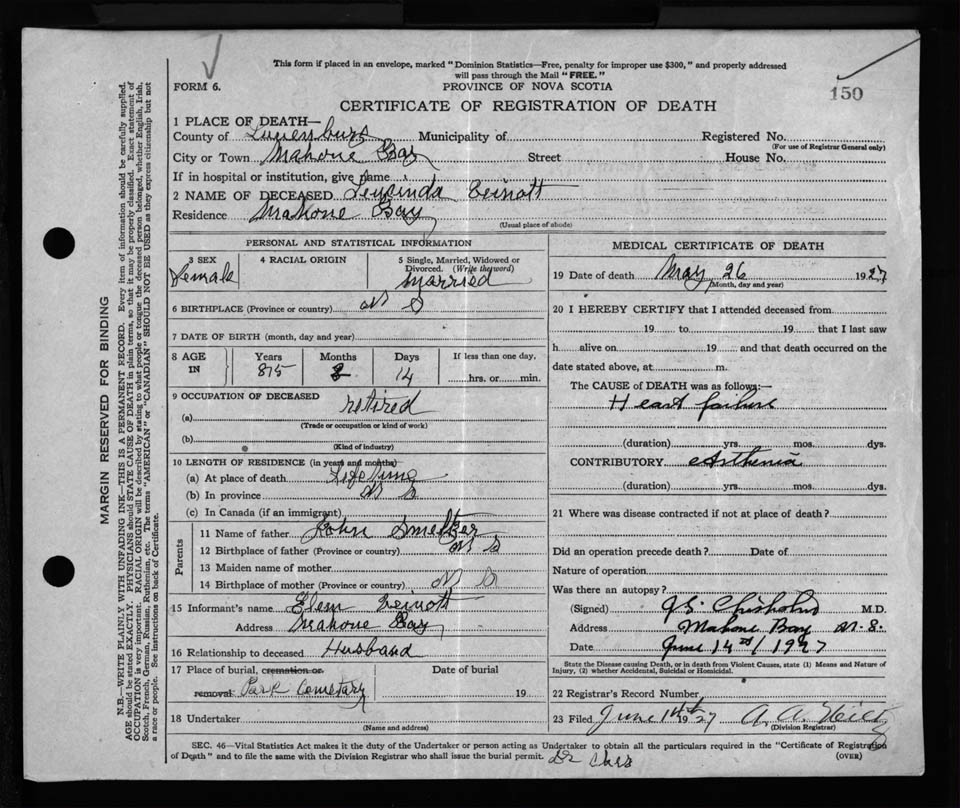 This form if placed in an envelope, marked "Dominion Statistics—Free, penalty for improper use $300," and properly addressed
will pass through the Mail "FREE."
FORM 6. PROVINCE OF NOVA SCOTIA 150
CERTIFICATE OF REGISTRATION OF DEATH
1 PLACE OF DEATH—
County of Lunenburg Municipality of Registered No.
(For use of Registrar General only)
City or Town Mahone Bay Street House No.
If in hospital or institution, give name
2 NAME OF DECEASED
Residence Mahone Bay
(Usual place of abode)
PERSONAL AND STATISTICAL INFORMATION
3 SEX 4 RACIAL ORIGIN 5 Single, Married, Widowed or
Divorced. (Write the word)
Female married
6 BIRTHPLACE (Province or country) N S
7 DATE OF BIRTH (month, day and year)
8 AGE IN Years Months Days If less than one day,
85 14 hrs. or min.
9 OCCUPATION OF DECEASED
(a) retired
(Trade or occupation or kind of work)
(b)
(Kind of industry)
10 LENGTH OF RESIDENCE (in years and months)
(a) At place of death Life time
(b) In province N S
(c) In Canada (if an immigrant)
Parents
11 Name of father John Smeltzer
12 Birthplace of father (Province or country) N S
13 Maiden name of mother
14 Birthplace of mother (Province or country) N S
15 Informant's name
Address Mahone Bay
16 Relationship to deceased Husband
17 Place of burial, cremation or Date of burial
removal Park Cemetary 19
18 Undertaker
(Name and address)
MEDICAL CERTIFICATE OF DEATH
19 Date of death May 26 1927
(Month, day and year)
20 I HEREBY CERTIFY that I attended deceased from
19 to 19 that I last saw
h alive on 19 and that death occurred on the
date stated above, at m.
The CAUSE of DEATH was as follows:—
Heart failure
(duration) yrs. mos. dys.
CONTRIBUTORY Asthenia
(duration) yrs. mos. dys.
21 Where was disease contracted if not at place of death?
Did an operation precede death? Date of
Nature of operation
Was there an autopsy?
(Signed) Chisholm M.D.
Address Mahone Bay N.S.
Date June 14th/1927
State the Disease causing Death, or in death from Violent Causes, state (1) Means and Nature of
Injury, (2) whether Accidental, Suicidal or Homicidal.
22 Registrar's Record Number
23 Filed June 14th 1927 A. A.
(Division Registrar)
SEC. 46—Vital Statistics Act makes it the duty of the Undertaker or person acting as Undertaker to obtain all the particulars required in the "Certificate of Registration
of Death" and to file the same with the Division Registrar who shall issue the burial permit. (OVER)
MARGIN RESERVED FOR BINDING
N.B.—WRITE PLAINLY WITH UNFADING INK—THIS IS A PERMANENT RECORD. Every item of information should be carefully supplied.
AGE should be stated EXACTLY. PHYSICIANS should STATE CAUSE OF DEATH in plain terms, so that it may be properly classified. Exact statement of
OCCUPATION is very important. RACIAL ORIGIN will be described by stating to what people or tongue the deceased person belonged, whether English, Irish,
Scotch, French, German, Russian, Ruthenian, etc. The terms "AMERICAN" or "CANADIAN" SHOULD NOT BE USED as they express citizenship but not
a race or people. See instructions on back of Certificate.